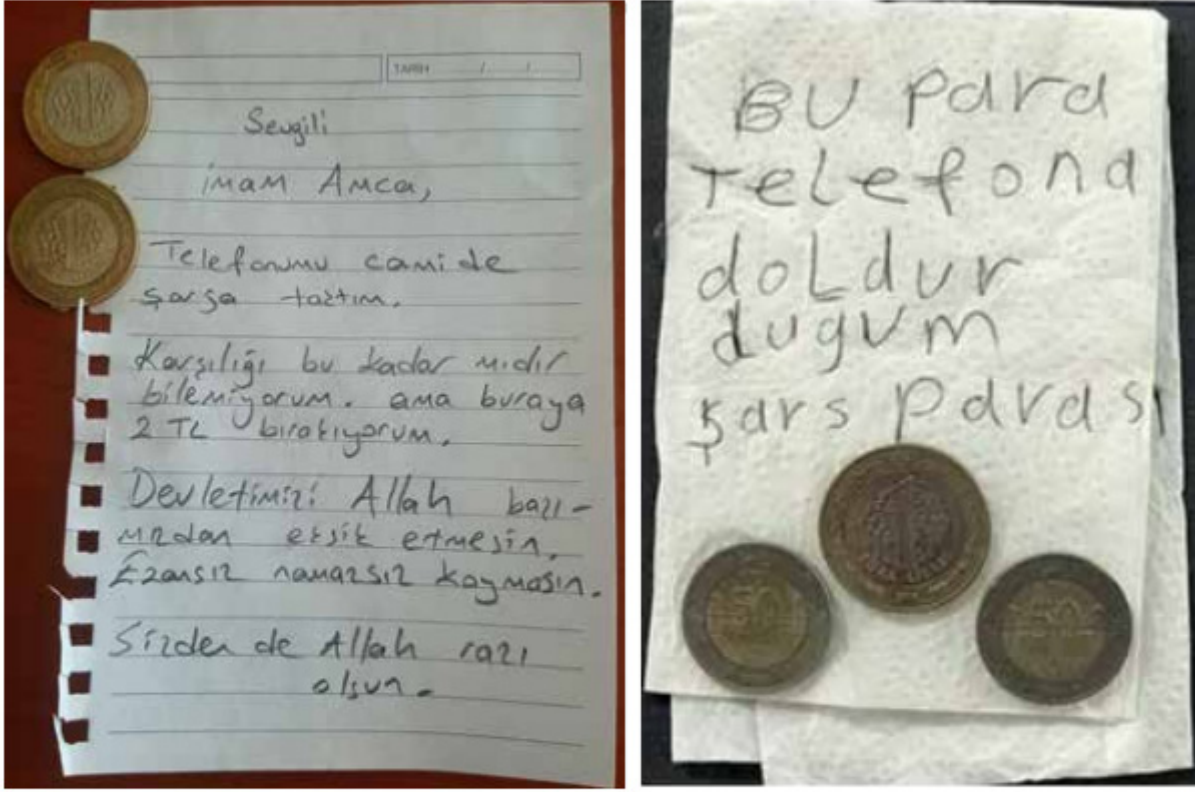 TARİH / /
Sevgili
imam Amca,
Telefonumu camide
şarja taktım.
Karşılığı bu kadar mıdır
bilemiyorum. ama buraya
2 TL bırakıyorum.
Devletimizi Allah başı-
mızdan eksik etmesin.
Ezansız namazsız koymasın.
Sizden de Allah razı
olsun.
BU para
Telefona
doLdur
dugum
şars parası
50
50